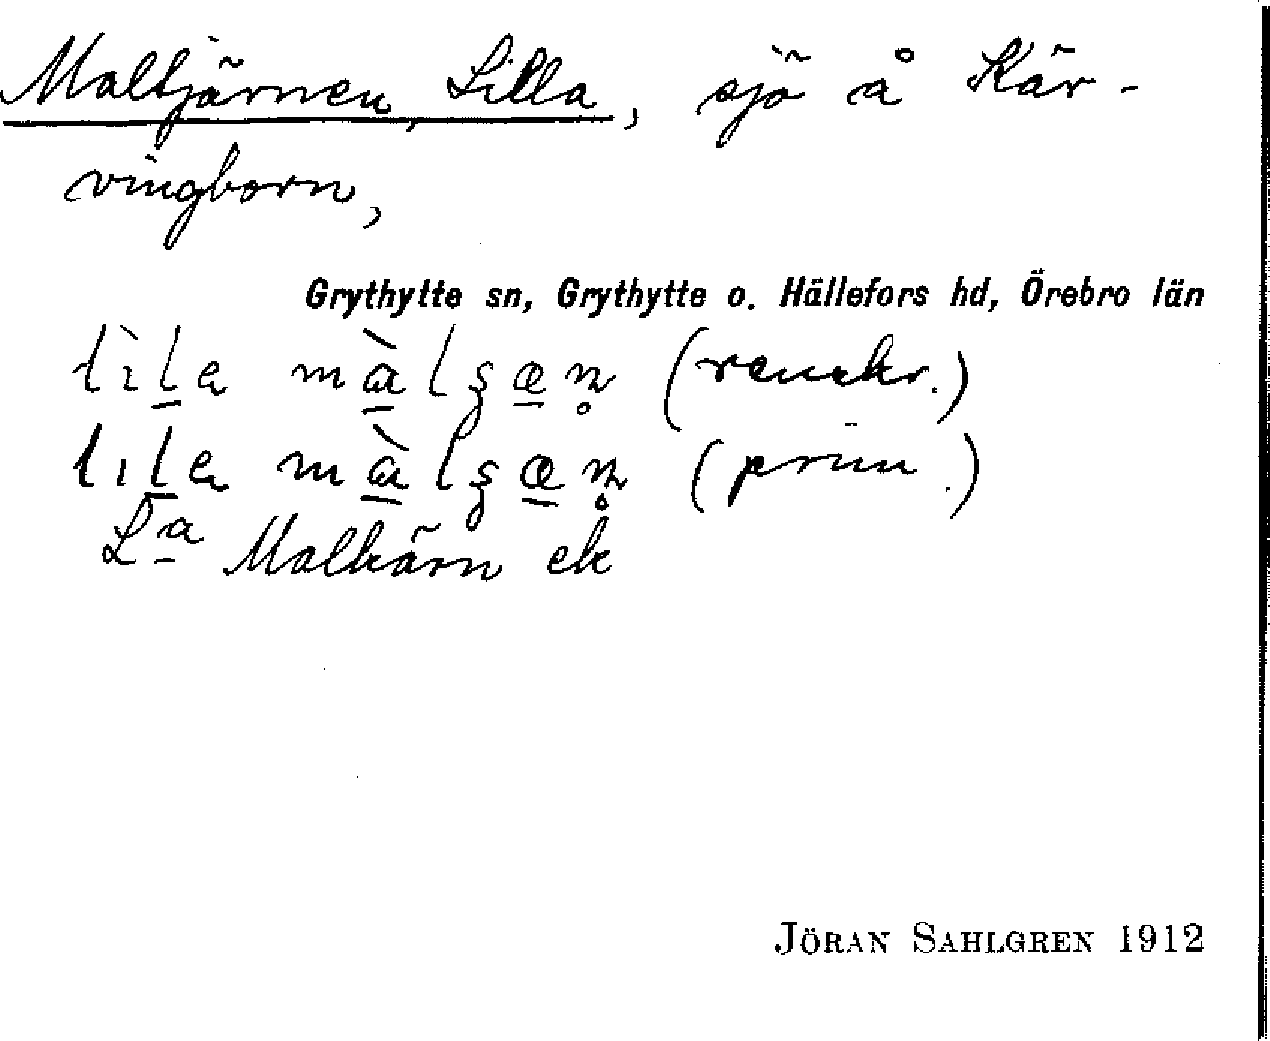 Maltjärnen, Lilla, sjö å Kär-
vingborn,
Grythytte sn, Grythytte o. Hällefors hd, Örebro län
lìla màlşæn̥ (renskr.)
lıla màlşæn̥ (prim.)
L:a Malkärn ek
JÖRAN SAHLGREN 1912